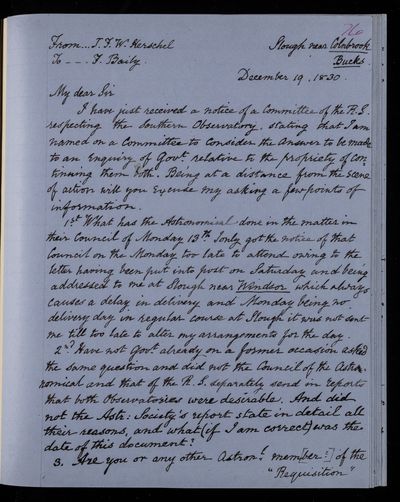 76
From... J. F. W. Herschel
Slough near Colnbrook
To - - - F. Baily.
Bucks.
December 19, 1830.
My dear Sir
I have just received a notice of a Committee of the R.S.
respecting the Southern Observatory, stating that I am
named on a Committee to consider the Answer to be made
to an Enquiry of Govt. relative to the propriety of con-
tinuing them both. Being at a distance from the scene
of action will you Excuse my asking a few points of
information.
1.st What has the Astronomical done in the matter in
their Council of Monday 13th. I only got the notice of that
Council on the Monday too late to attend owing to the
letter having been put into post on Saturday and being
addressed to me at Slough near Windsor which always
causes a delay in delivery and Monday being no
delivery day in regular course at Slough it was not sent
me till too late to alter my arrangements for the day.
2.nd Have not Govt. already on a former occasion asked
the same question and did not the Council of the Astro-
nomical and that of the R.S. separately send in reports
that both Observatories were desirable. And did
not the Astr: Society's report state in detail all
their reasons, and what (if I am correct) was the
date of this document?
3. Are you or any other Astronl. mem[ber:] of the
"Requisition"